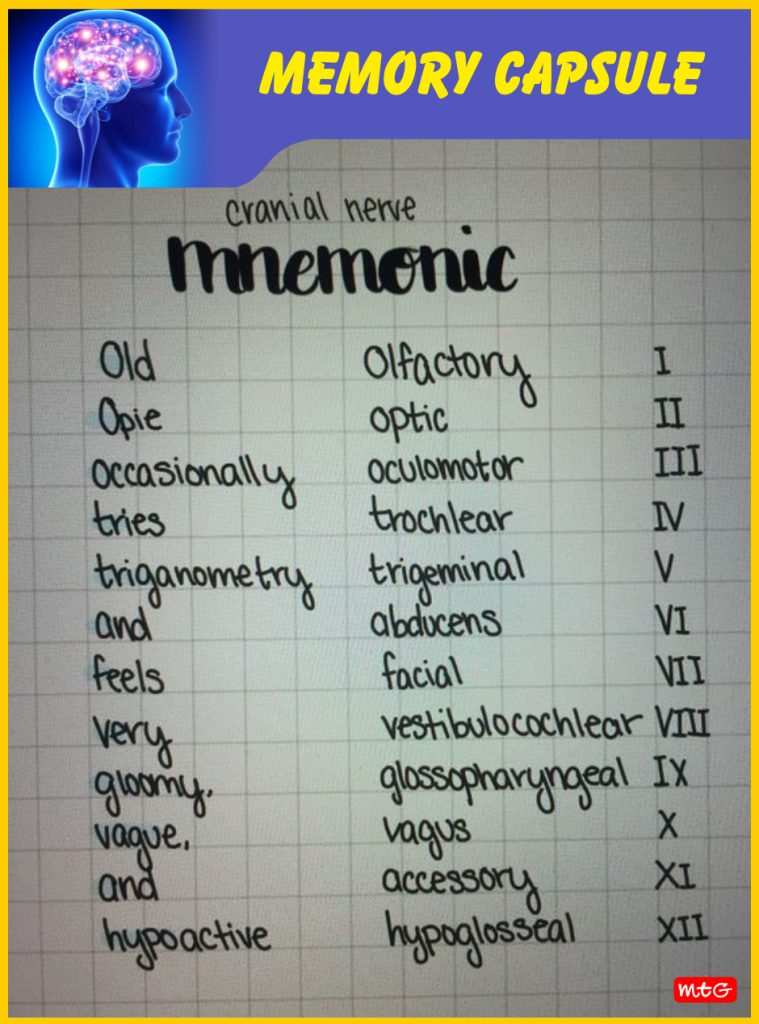 MEMORY CAPSULE
cranial nerve
mnemonic
Old Olfactory I
Opie optic II
occasionally oculomotor III
tries trochlear IV
triganometry trigeminal V
and abducens VI
feels facial VII
very vestibulocochlear VIII
gloomy, glossopharyngeal IX
vague, vagus X
and accessory XI
hypoactive hypoglosseal XII
mtG